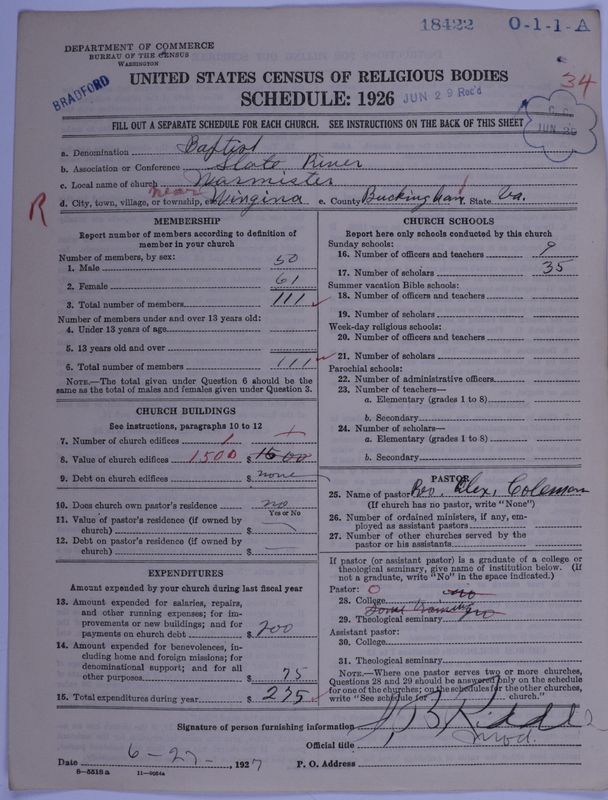 18422 O-1-1-A
DEPARTMENT OF COMMERCE
BUREAU OF THE CENSUS
WASHINGTON
BRADFORD
UNITED STATES CENSUS OF RELIGIOUS BODIES
SCHEDULE: 1926 JUN 29 Rec'd
34
JUN 26
FILL OUT A SEPARATE SCHEDULE FOR EACH CHURCH. SEE INSTRUCTIONS ON THE BACK OF THIS SHEET
a. Denomination Baptist
b. Association or Conference Slate River
c. Local name of church Warmister
d. City, town, village, or township, near Wingina e. County Buckingham State Va.
R
MEMBERSHIP
Report number of members according to definition of
member in your church
Number of members, by sex:
1. Male 50
2. Female 61
3. Total number of members 111
Number of members under and over 13 years old:
4. Under 13 years of age
5. 13 years old and over
6. Total number of members 111
NOTE.—The total given under Question 6 should be the
same as the total of males and females given under Question 3.
CHURCH BUILDINGS
See instructions, paragraphs 10 to 12
7. Number of church edifices 1 1
8. Value of church edifices 1500 $ 1500
9. Debt on church edifices $ none
10. Does church own pastor's residence no
Yes or No
11. Value of pastor's residence (if owned by
church) $
12. Debt on pastor's residence (if owned by
church) $ —
EXPENDITURES
Amount expended by your church during last fiscal year
13. Amount expended for salaries, repairs,
and other running expenses; for im-
provements or new buildings; and for
payments on church debt $ 200
14. Amount expended for benevolences, in-
cluding home and foreign missions; for
denominational support; and for all
other purposes $ 75
15. Total expenditures during year $ 275
CHURCH SCHOOLS
Report here only schools conducted by this church
Sunday schools:
16. Number of officers and teachers 9
17. Number of scholars 35
Summer vacation Bible schools:
18. Number of officers and teachers
19. Number of scholars
Week-day religious schools:
20. Number of officers and teachers
21. Number of scholars
Parochial schools:
22. Number of administrative officers
23. Number of teachers—
a. Elementary (grades 1 to 8)
b. Secondary
24. Number of scholars—
a. Elementary (grades 1 to 8)
b. Secondary
PASTOR
25. Name of pastor Rev. Alex. Coleman
(If church has no pastor, write "None")
26. Number of ordained ministers, if any, em-
ployed as assistant pastors
27. Number of other churches served by the
pastor or his assistants
If pastor (or assistant pastor) is a graduate of a college or
theological seminary, give name of institution below. (If
not a graduate, write "No" in the space indicated.)
Pastor: O
28. College no
Some training no
29. Theological seminary
Assistant pastor:
30. College
31. Theological seminary
NOTE.—Where one pastor serves two or more churches,
Questions 28 and 29 should be answered only on the schedule
for one of the churches; on the schedules for the other churches,
write "See schedule for church."
Signature of person furnishing information
Official title Mod.
Date 6-27-, 1927 P. O. Address
8—5518 a 11—9024a